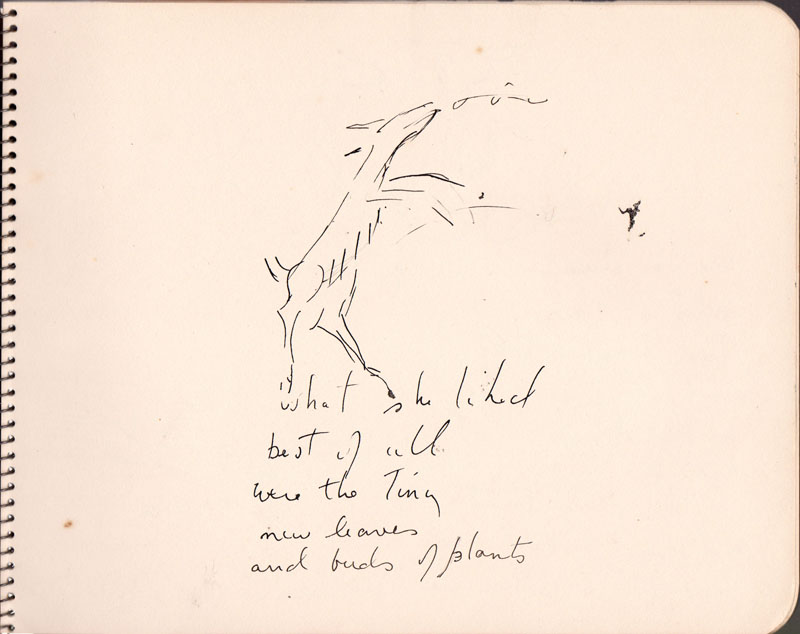 what she liked
best of all
were the Tiny
new leaves
and buds of plants